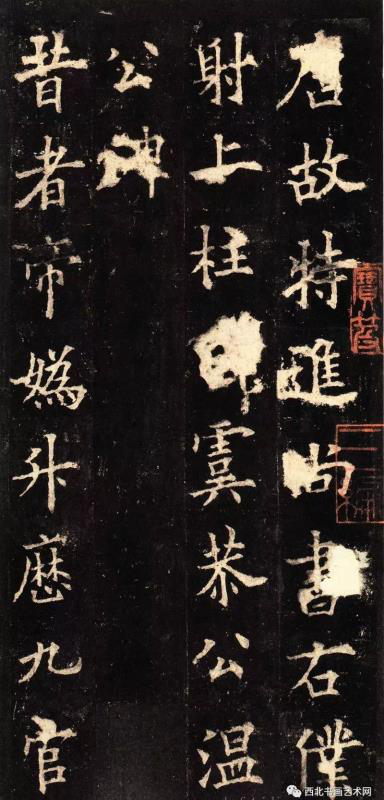 唐故特進尚書右僕
射上柱虞恭公温
公碑
昔者帝媯升歷九官
西北书画艺术网